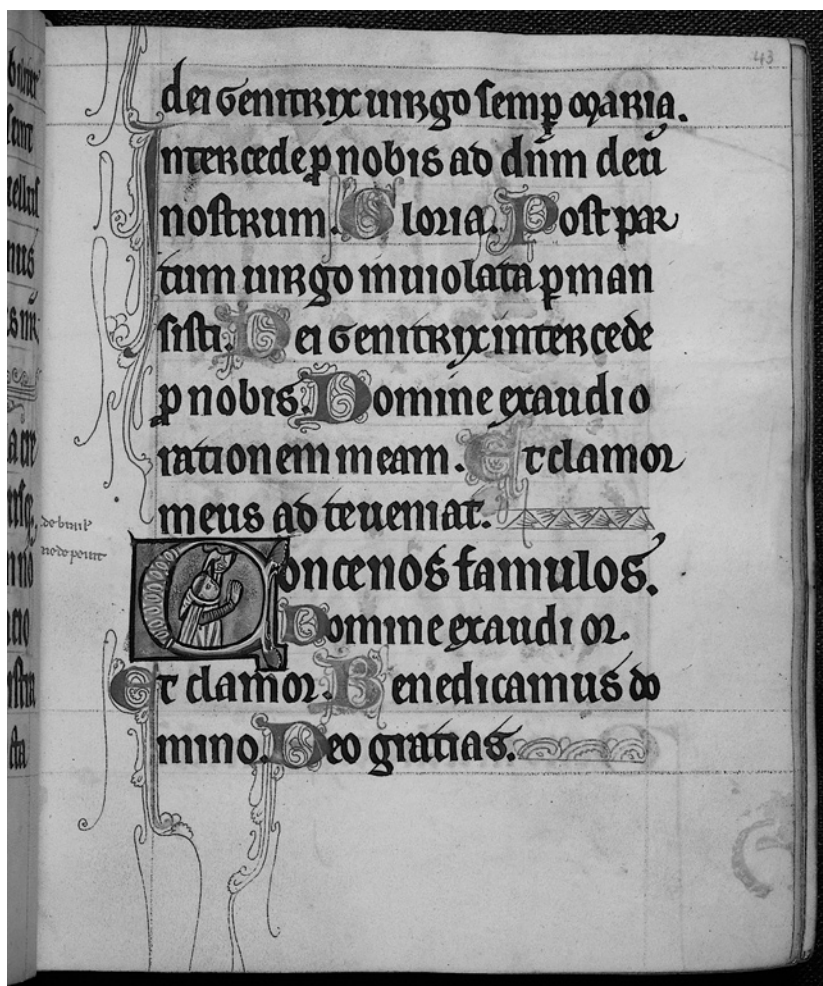 43
dei Genitrix uirgo semp̱ maria.
Intercede ꝓ nobis ad dn̄m deū
nostrum. Gloria. Post par
tum uirgo inuiolata ꝑman
sisti. Dei Genitrix intercede
ꝓ nobis. Domine exaudi o
rationem meam. Et clamor
meus ad te ueniat.
Concenos famulos.
Domine exaudi or.
Et clamor. Benedicamus do
mino. Deo gratias.